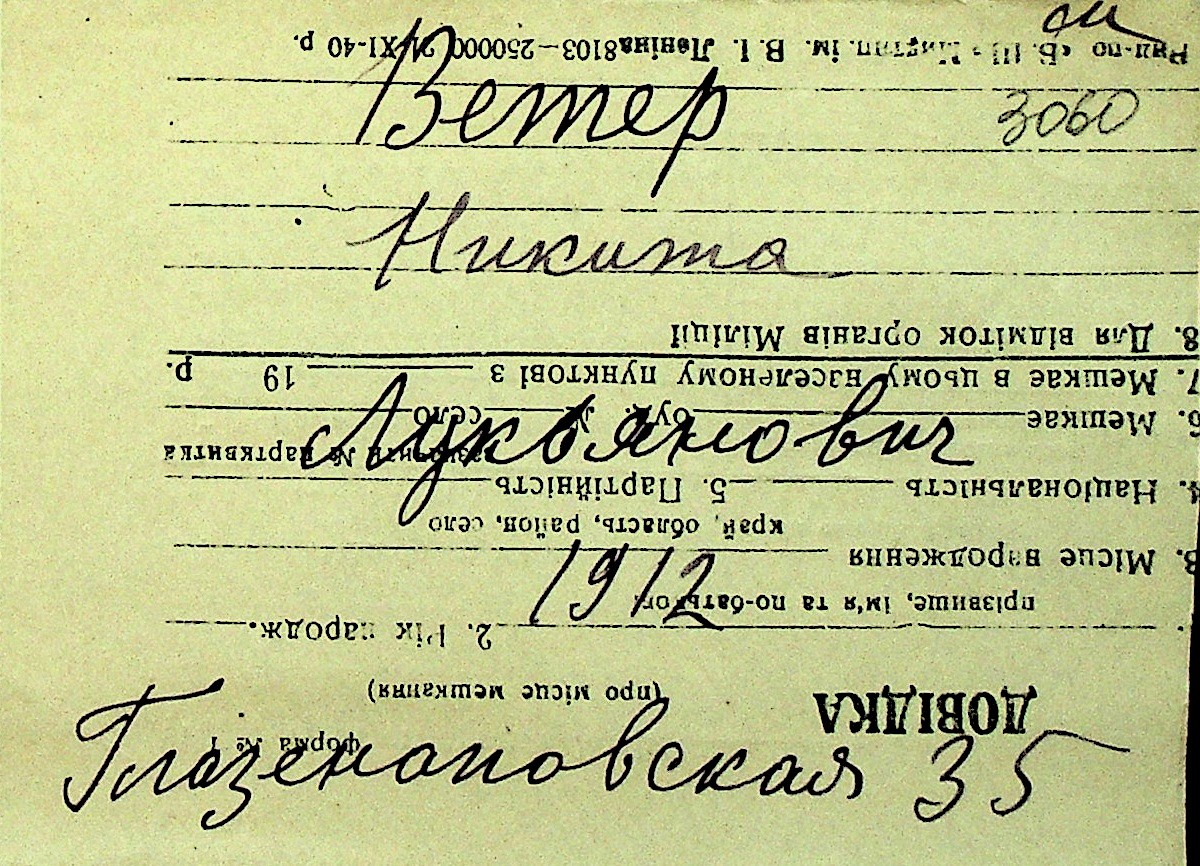 Ветер
3060
Никита
Лукьянович
1912
Глазенаповская 35
форма № 1
ДОВІДКА
(про місце мешкання)
2. Рік народж.
прізвище, ім'я та по-батькові
3. Місце народження
край, область, район, село
4. Національність 5. Партійність
№ партквитка
6. Мешкає вул. № село
7. Мешкає в цьому населеному пунктові з 19 р.
8. Для відміток органів Міліції
ім. В. І. Леніна 8103—250000 21-XI-40 р.